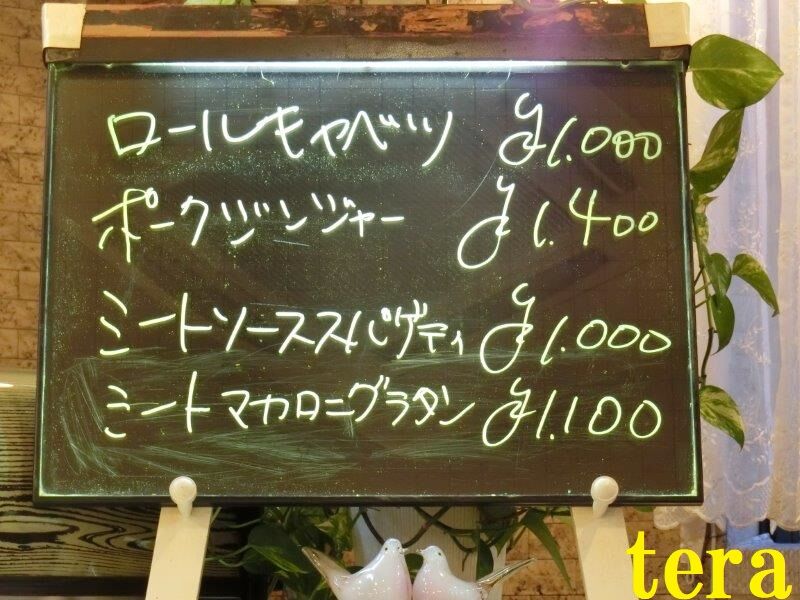 ロールキャベツ ¥1.000
ポークジンジャー ¥1.400
ミートソーススパゲティ ¥1.000
ミートマカロニグラタン ¥1.100
tera